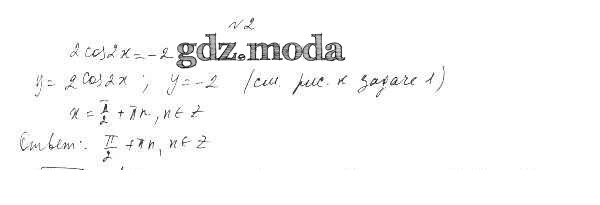 №2
2cos2x=-2 gdz.moda
y=2cos2x; y=-2 (см. рис. к задаче 1)
x=π/2+πn, n∈Z
Ответ: π/2+πn, n∈Z